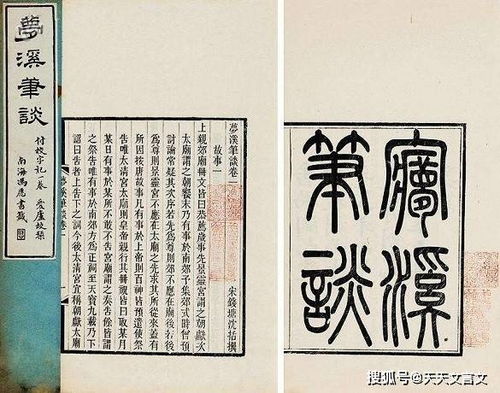 夢溪筆談
付校字記一卷 愛廬校槧
南海馮
夢溪筆談卷一
宋錢塘沈括撰
故事一
上親郊廟冊文皆曰恭薦歲事先景靈宮謂之朝獻次
太廟謂之朝饗末乃有事於南郊予集郊式時曾預
討論常疑其次序若先為尊則郊不應在廟後若後
為尊則景靈宮不應在太廟之先求其所從來蓋有
所因按唐故事凡有事於上帝則百神皆預遣使祭
告唯太清宮太廟則皇帝親行其冊祝皆曰取某月
某日有事於某所不敢不告宮廟謂之奏告餘皆謂
之祭告唯有事於南郊方為正祠至天寶九載乃下
詔曰告者上告下之詞今後太清宮宜稱朝獻太廟
夢溪筆談卷一
夢溪
筆談
搜狐号@天天文言文